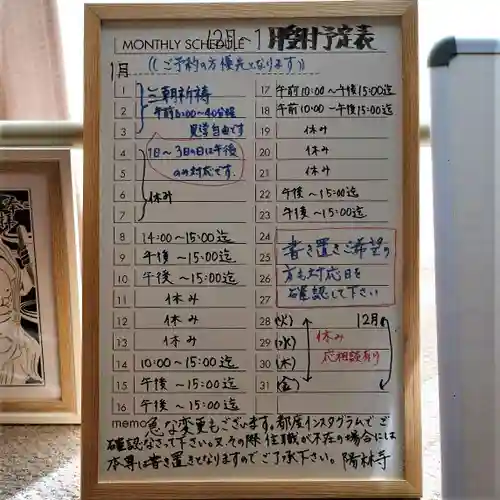 MONTHLY SCHEDULE
12月〜1月受付予定表
1月
(ご予約の方優先となります)
1
2
3
三朝祈祷
午前6:00〜40分程
見学自由です
4
5
6
7
1日〜3日の日は午後
のみ対応です.
休み
8 14:00〜15:00迄
9 午後〜15:00迄
10 午後〜15:00迄
11 休み
12 休み
13 休み
14 10:00〜15:00迄
15 午後〜15:00迄
16 午後〜15:00迄
17 午前10:00〜午後15:00迄
18 午前10:00〜午後15:00迄
19 休み
20 休み
21 休み
22 午後〜15:00迄
23 午後〜15:00迄
24
25
26
27
書き置きご希望の
方も対応日を
確認して下さい
28 (火) 12月
29 (水) 休み
30 (木) 応相談有り
31 (金)
memo 急な変更もございます。都度インスタグラムでご
確認なさって下さい。又その際住職が不在の場合には
本尊は書き置きとなりますのでご了承下さい。陽林寺